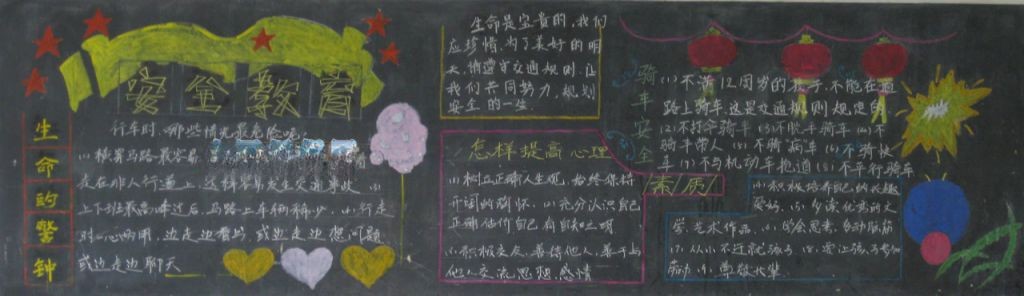 安全教育
生命的警钟
行车时,哪些情况最危险呢?
(1)横穿马路最容易
走在非人行道上,这样容易发生交通事故
上下班最高峰过后,马路上车辆稀少
行走
时一心两用,边走边看书,或边走边想问题
或边走边聊天
生命是宝贵的,我们
应珍惜,为了美好的明
天,请遵守交通规则,让
我们共同努力,规划
安全的一生.
怎样提高心理
素质
(1)树立正确人生观,始终保持
开阔的胸怀. (2)充分认识自己
正确估价自己有自知之明
(3)积极交友,善待他人,善于与
他人交流思想、感情
骑车安全
(1)不满12周岁的孩子,不能在道
路上骑车这是交通规则规定的
(2)不打伞骑车 (3)不脱手骑车 (4)不
骑车带人 (5)不骑病车 (6)不骑快
车 (7)不与机动车抢道 (8)不平行骑车
积极培养自己的兴趣
爱好
多读优秀的文
学、艺术作品